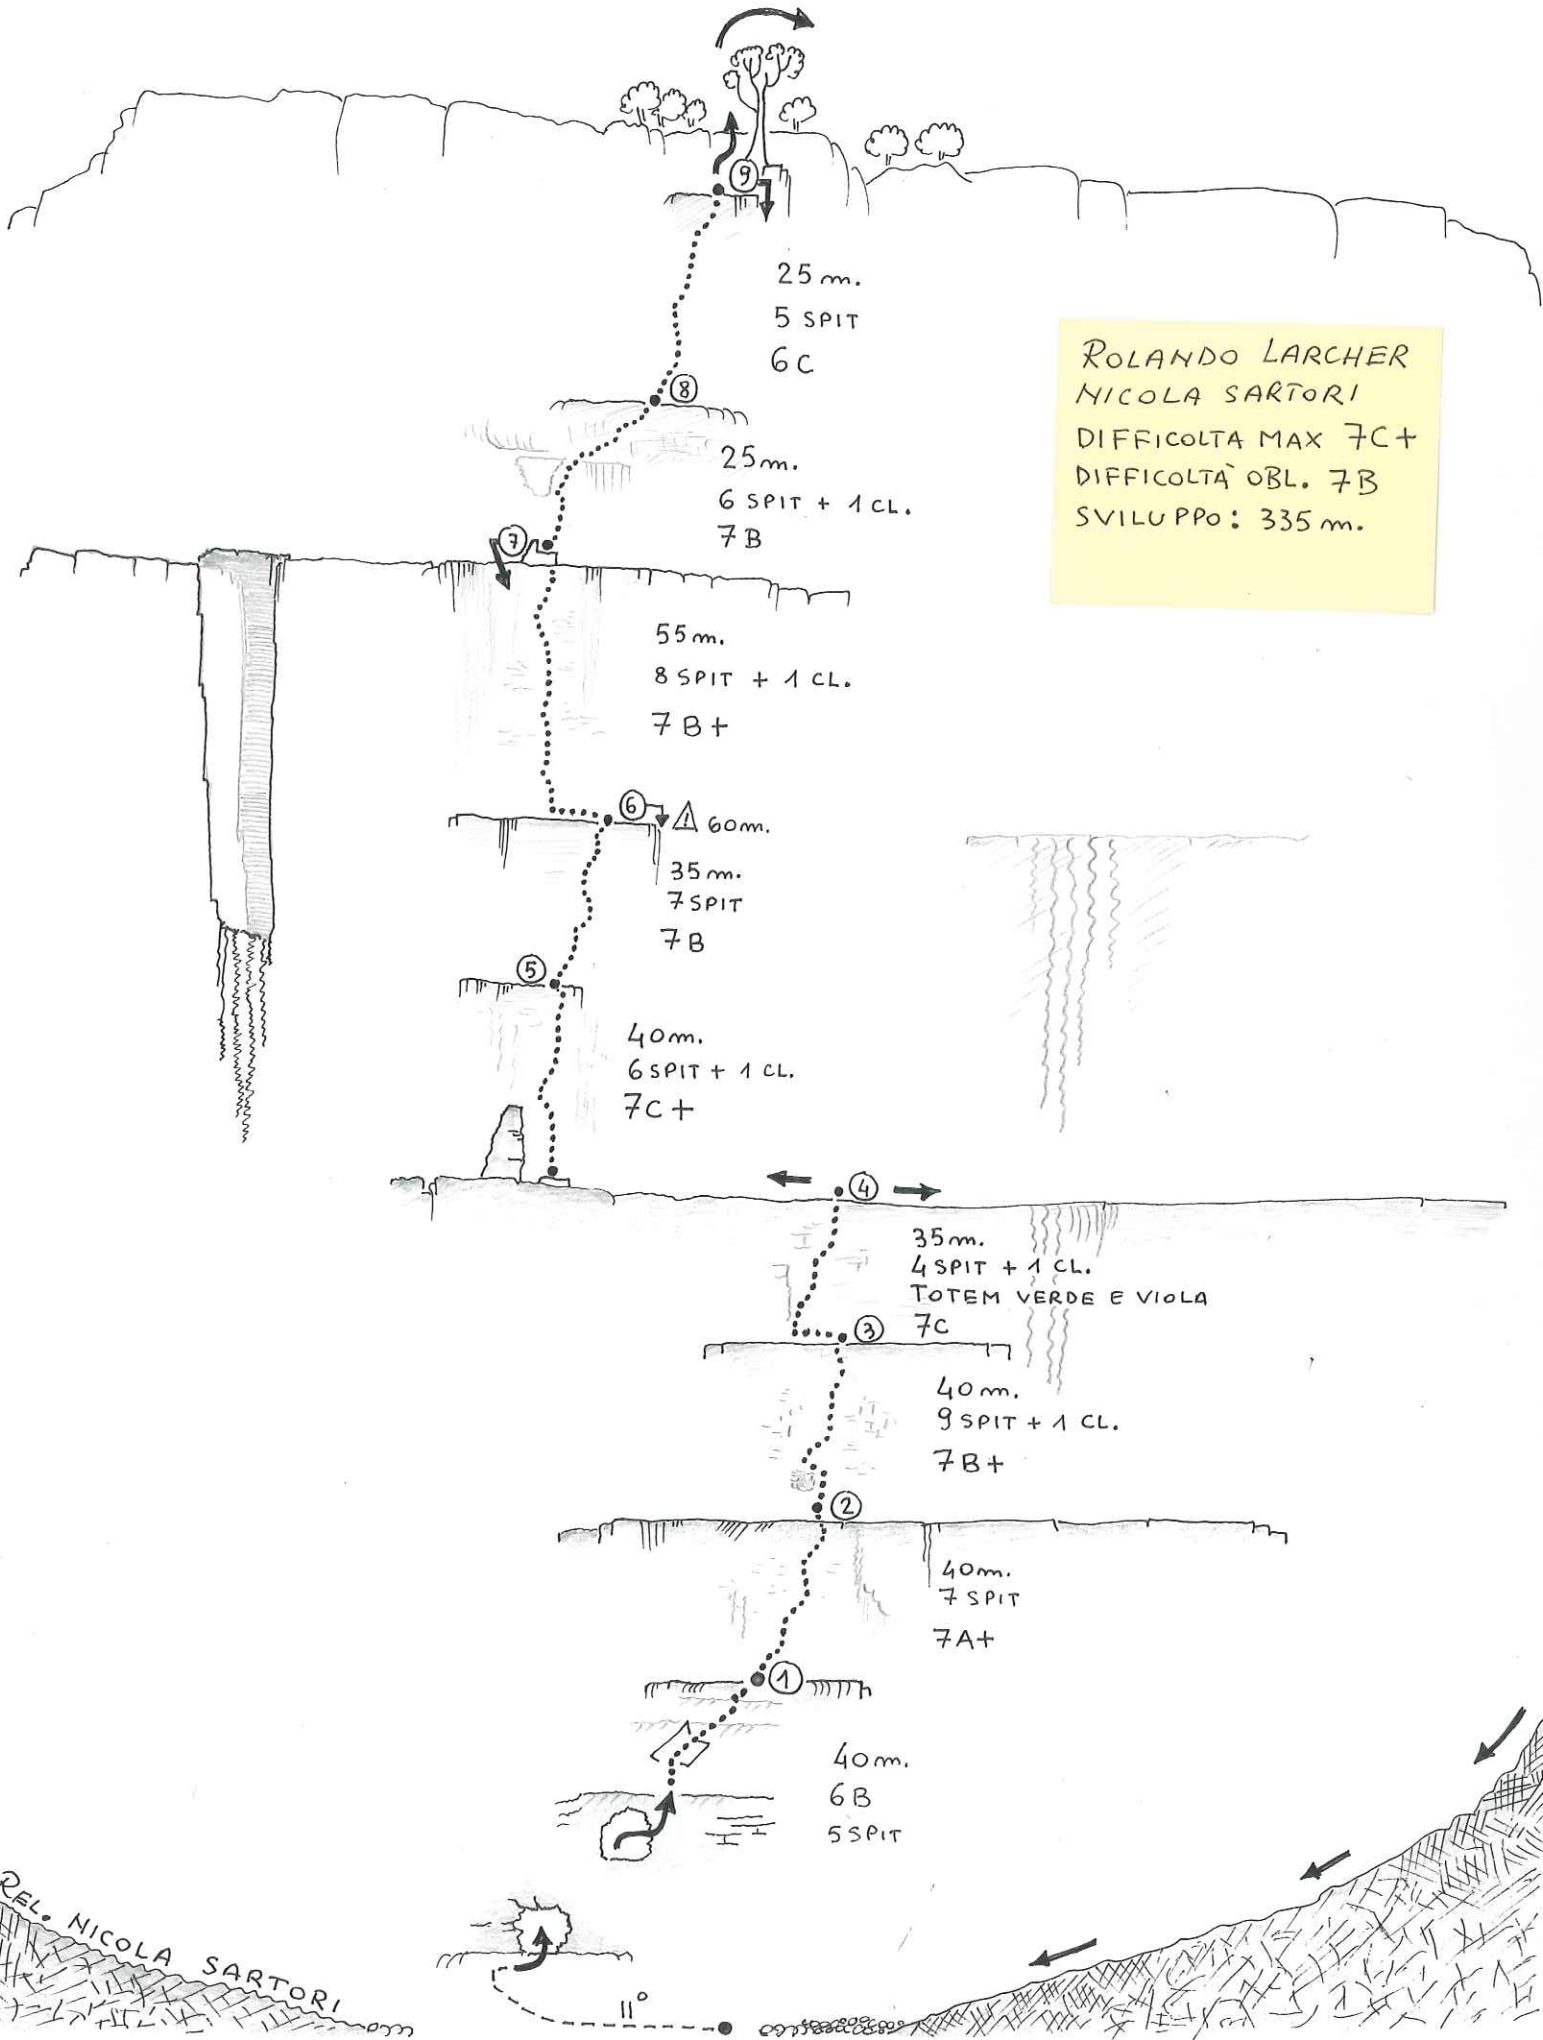 9
25 m.
5 SPIT
6C
ROLANDO LARCHER
NICOLA SARTORI
DIFFICOLTA MAX 7C+
DIFFICOLTÀ OBL. 7B
SVILUPPO: 335 m.
8
25 m.
6 SPIT + 1 CL.
7B
7
55 m.
8 SPIT + 1 CL.
7B+
6
! 60 m.
35 m.
7 SPIT
7B
5
40 m.
6 SPIT + 1 CL.
7C+
4
35 m.
4 SPIT + 1 CL.
TOTEM VERDE E VIOLA
7C
3
40 m.
9 SPIT + 1 CL.
7B+
2
40 m.
7 SPIT
7A+
1
40 m.
6B
5 SPIT
REL. NICOLA SARTORI
II°